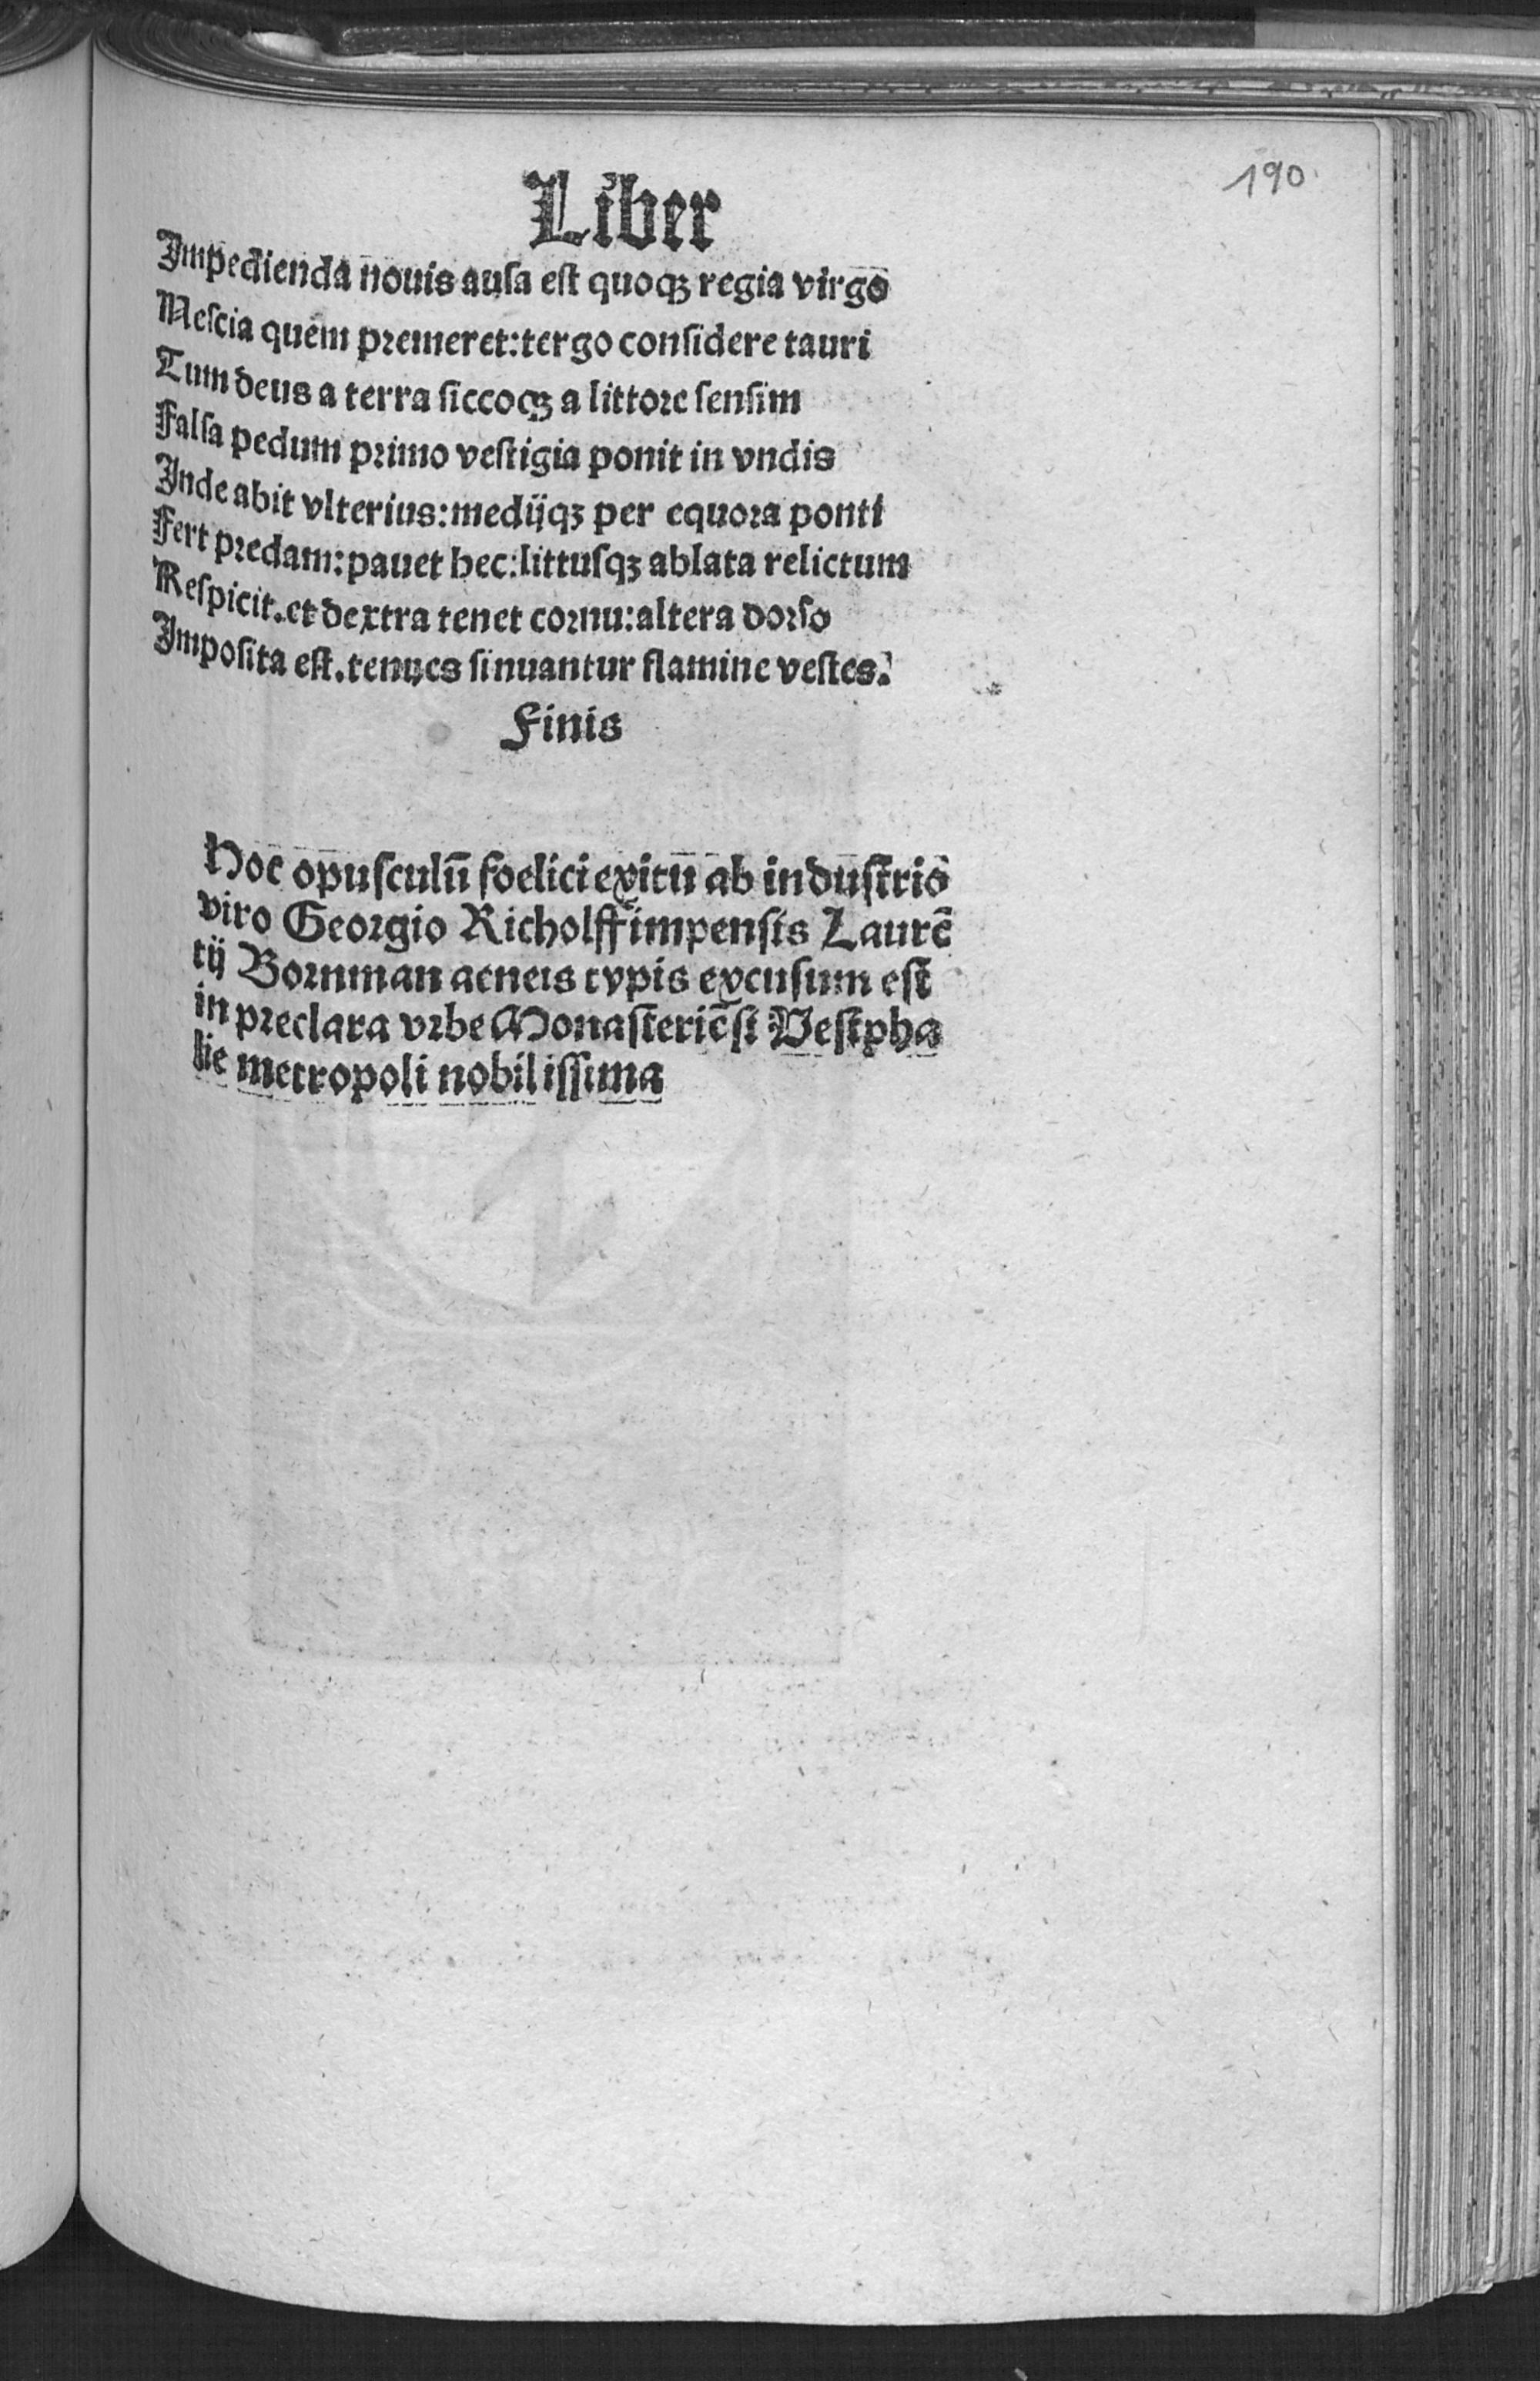 190
Liber
Impedienda nouis ausa est quoqꝫ regia virgo
Nescia quem premeret: tergo considere tauri
Tum deus a terra siccoqꝫ a littore sensim
Falsa pedum primo vestigia ponit in vndis
Inde abit vlterius: medijqꝫ per equora ponti
Fert predam: pauet hec: littusqꝫ ablata relictum
Respicit. et dextra tenet cornu: altera dorso
Imposita est. tenues sinuantur flamine vestes.
Finis
Hoc opusculū foelici exitu ab industrio
viro Georgio Richolff impensis Laurē
tij Bornman aeneis typis excusum est
in preclara vrbe Monasteriēsi Vestpha
lie metropoli nobilissima